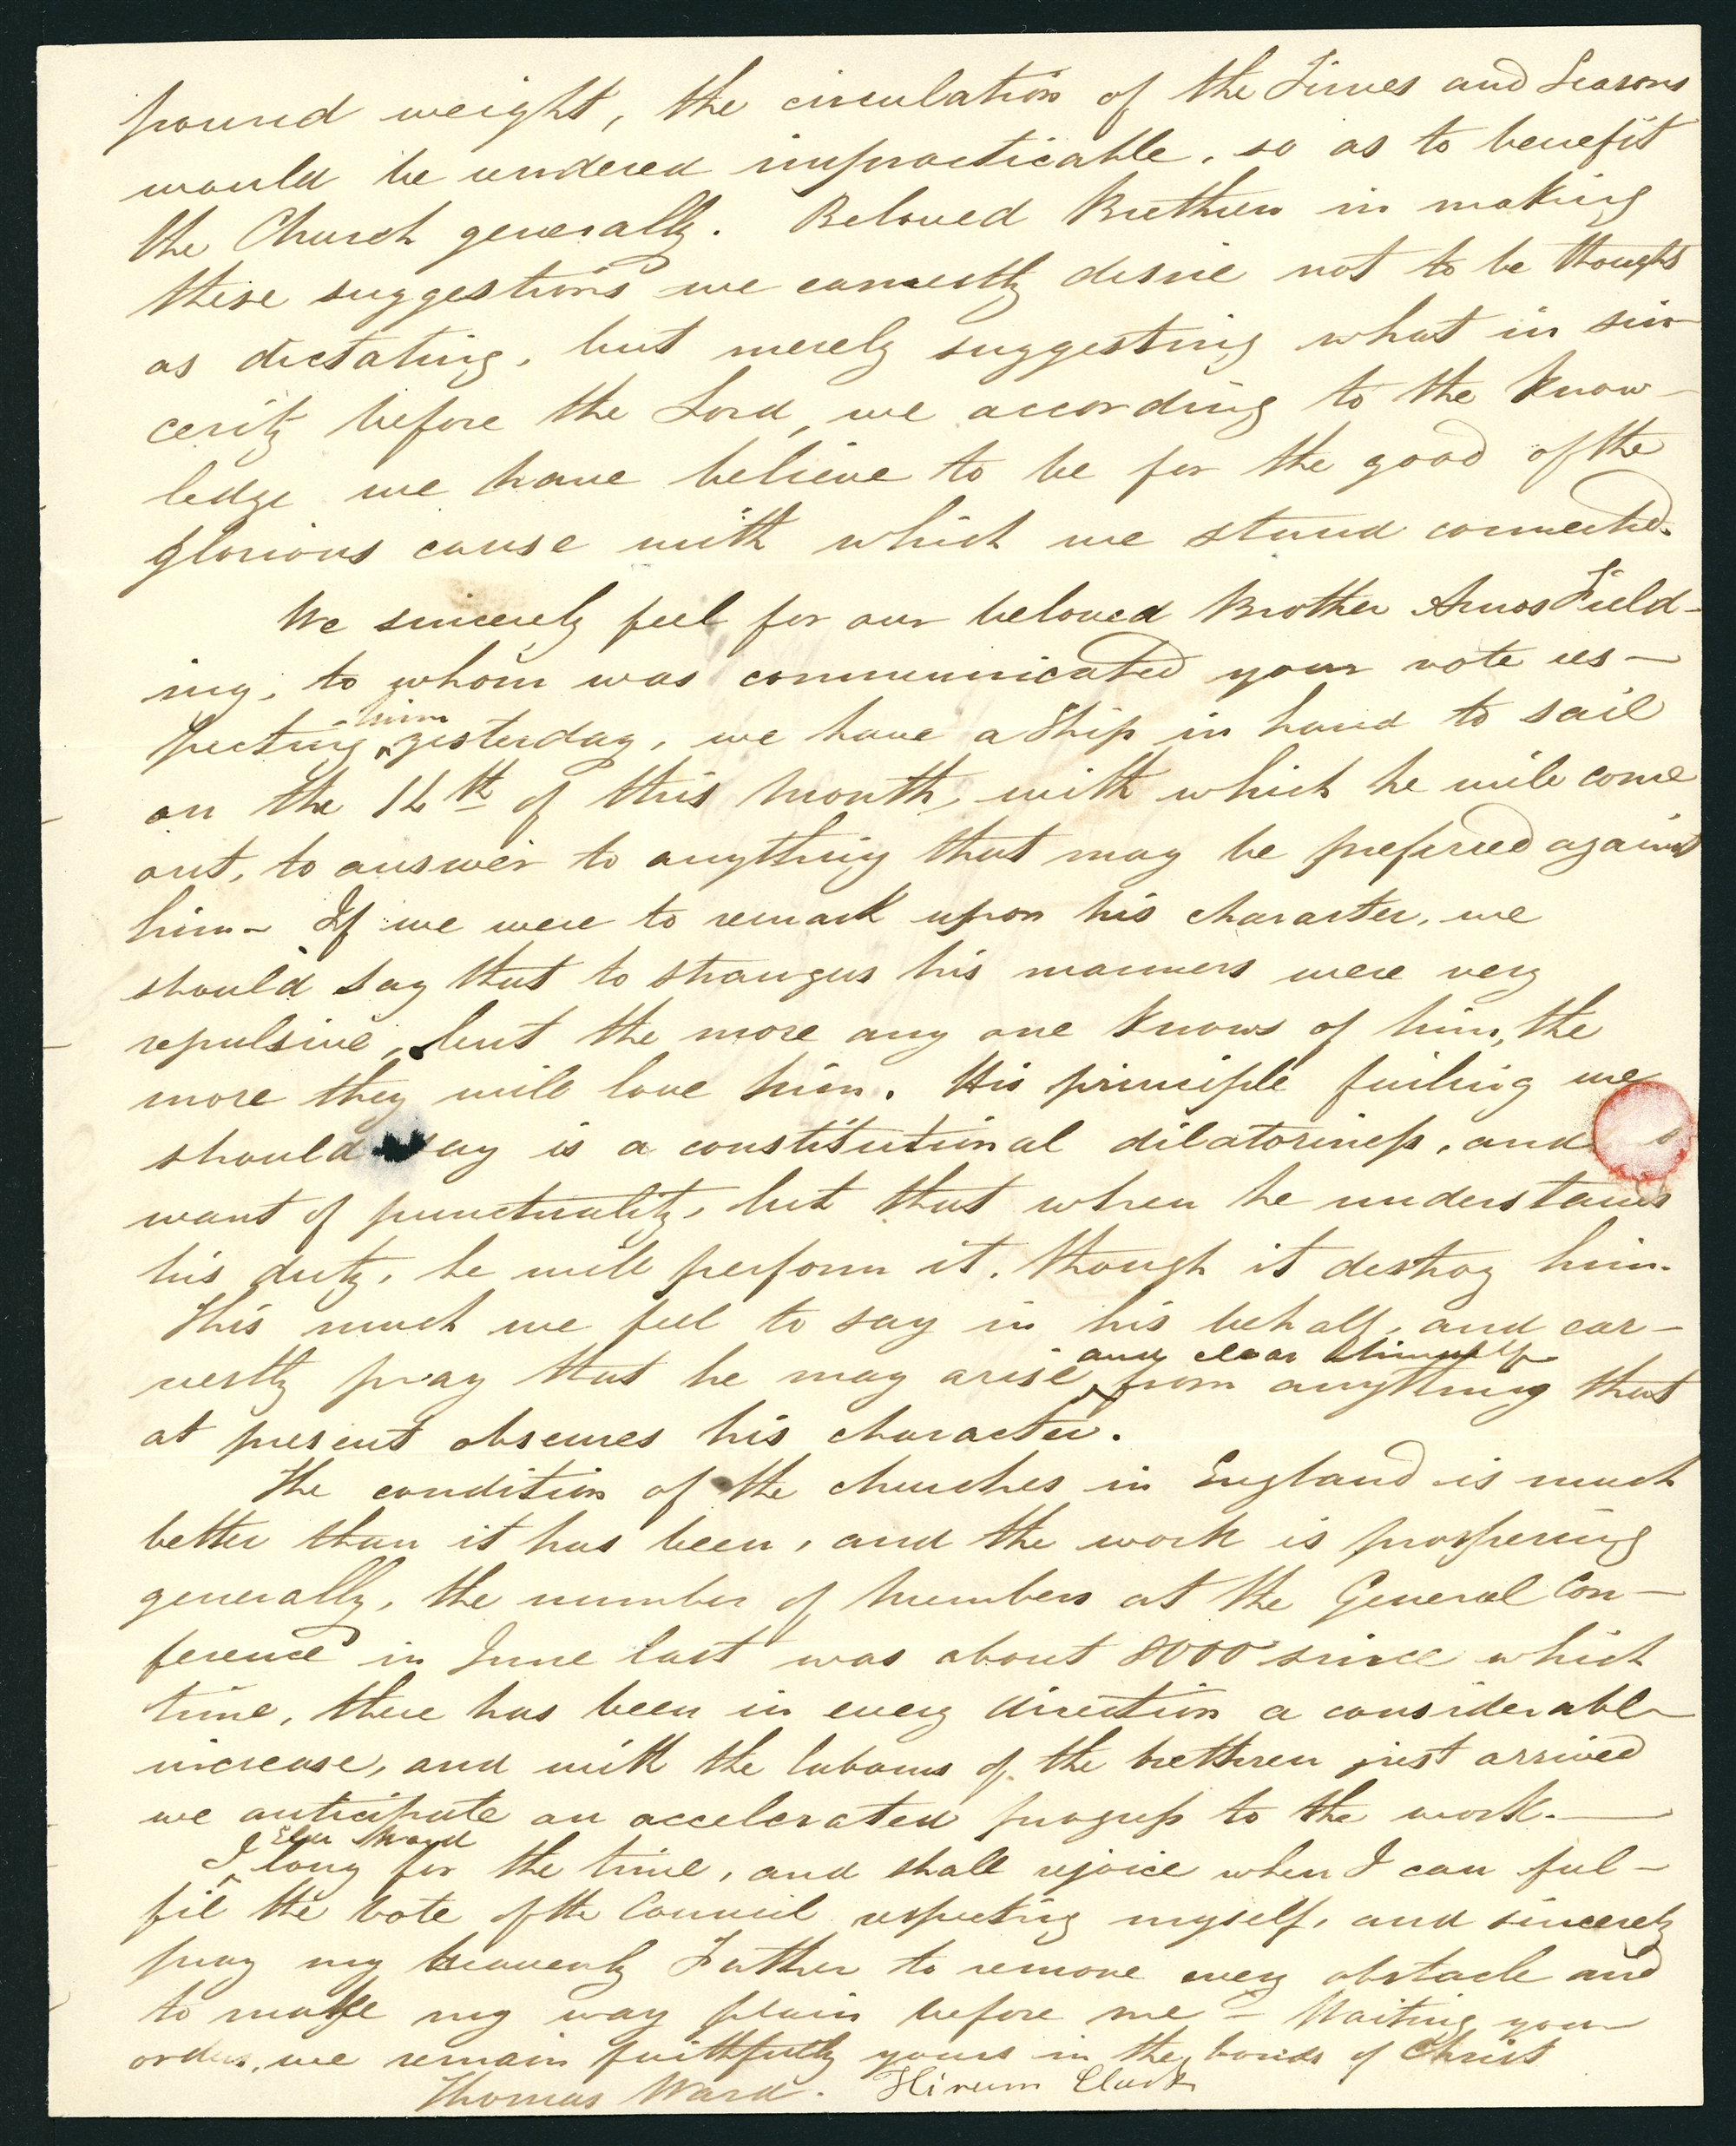 pound weight, the circulation of the Times and Seasons
would be rendered impracticable, so as to benefit
the Church generally. Beloved Brethren in making
these suggestions we earnestly desire not to be thought
as dictating, but merely suggesting what in sin-
cerity before the Lord, we according to the know-
ledge we have believe to be for the good of the
glorious cause with which we stand connected.
We sincerely feel for our beloved Brother Amos Field-
ing, to whom was communicated your vote res-
him
pecting ^ yesterday, we have a Ship in hand to sail
on the 14th of this Month, with which he will come
out, to answer to anything that may be preferred against
him- If we were to remark upon his character, we
should say that to strangers his manners were very
repulsive, but the more any one knows of him, the
more they will love him. His principle failing we
should say is a constitutional dilatoriness, and
want of punctuality, but that when he understands
his duty, he will perform it, though it destroy him.
This much we feel to say in his behalf, and ear-
and clear himself
nestly pray that he may arise ^ from anything that
at present obscures his character.
The condition of the churches in England is much
better than it has been, and the work is prospering
generally, the number of Members at the General Con-
ference in June last was about 8000 since which
time, there has been in every direction a considerable
increase, and with the labours of the brethren just arrived
we anticipate an accelerated progress to the work.—
Elder Ward
I ^ long for the time, and shall rejoice when I can ful-
fil the Vote of the Council respecting myself, and sincerely
pray my heavenly Father to remove every obstacle and
to make my way plain before me - Waiting your
orders, we remain faithfully yours in the bonds of Christ
Thomas Ward. Hiram Clark